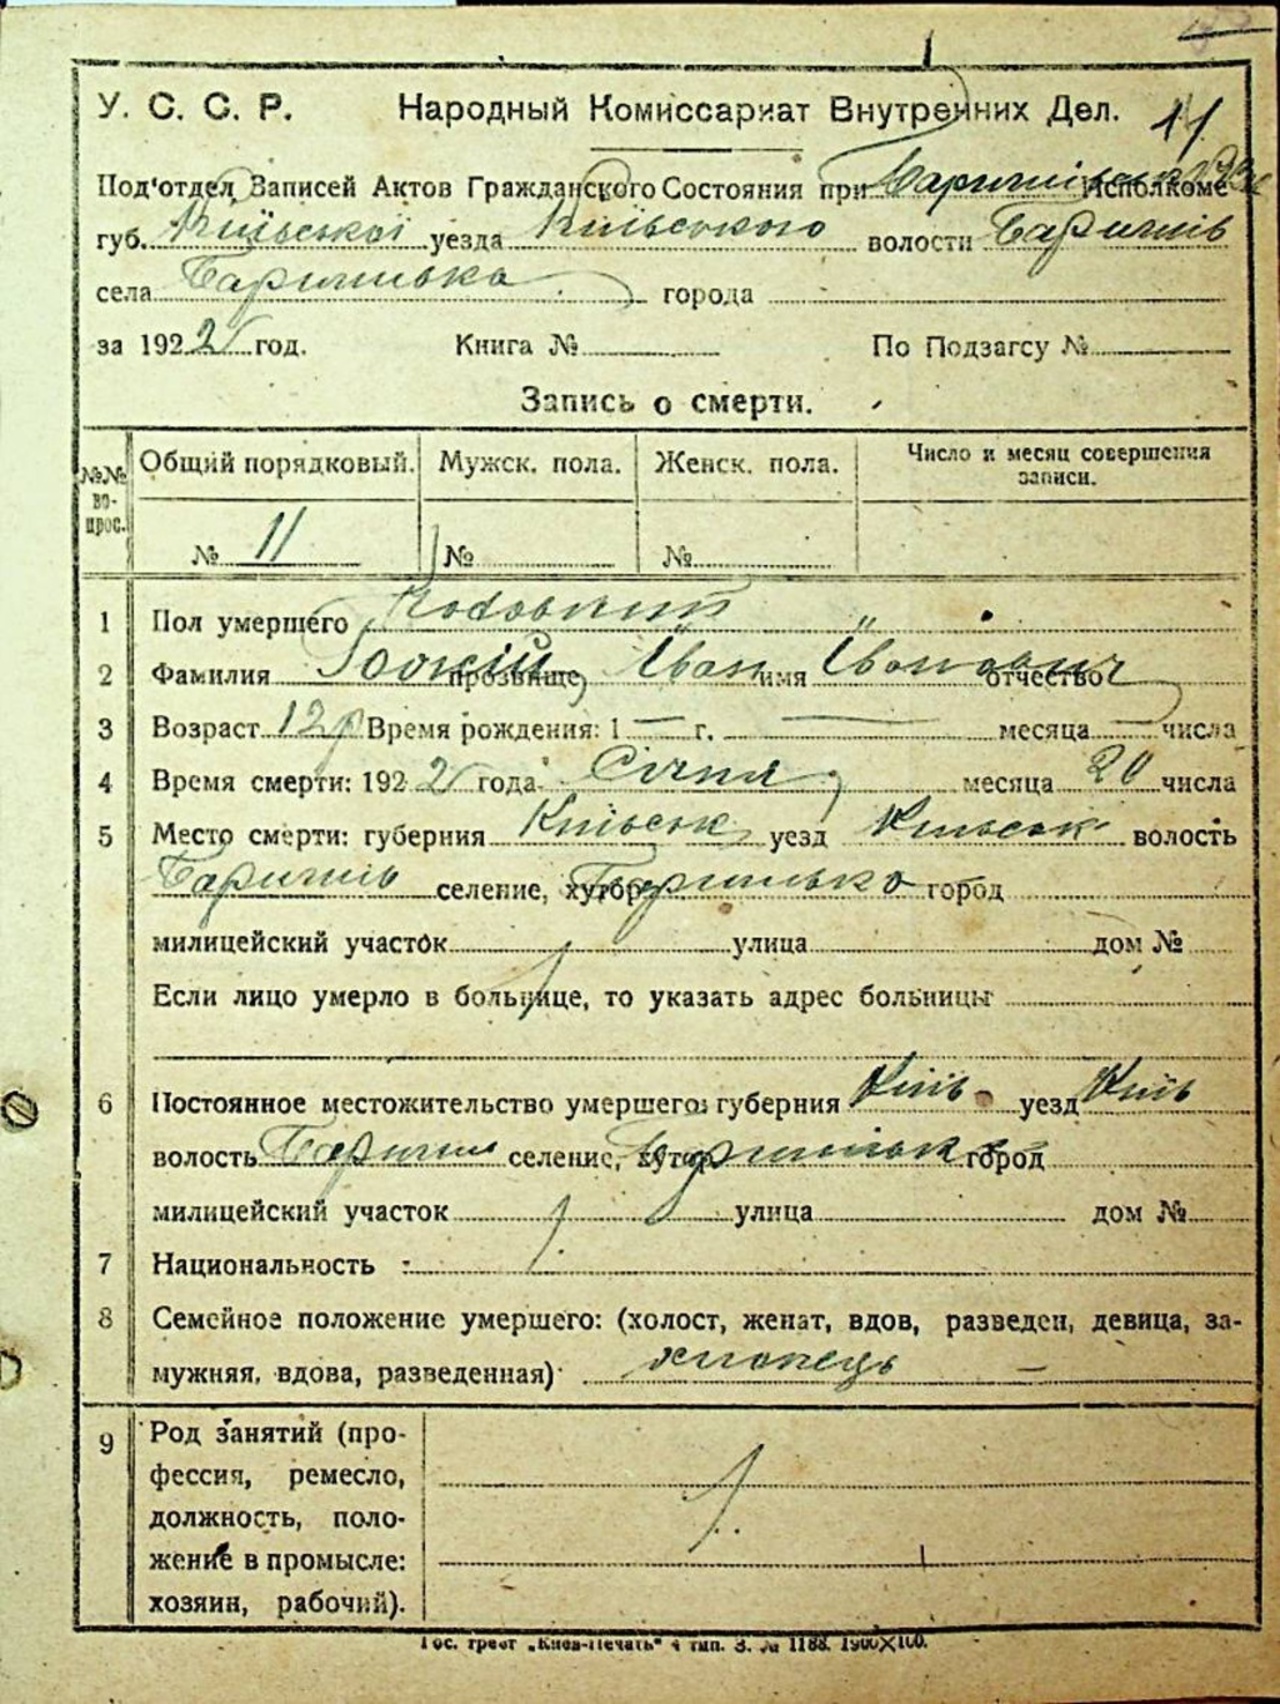 У. С. С. Р. Народный Комиссариат Внутренних Дел. 11
Под'отдел Записей Актов Гражданского Состояния при Исполкоме
губ. Київської уезда Київського волости Баришів
села Баришівка города
за 1922 год. Книга № По Подзагсу №
Запись о смерти.
№№ вопрос. Общий порядковый. Мужск. пола. Женск. пола. Число и месяц совершения записи.
№ 11 № №
1 Пол умершего
2 Фамилия прозвище Іван имя Іванович отчество
3 Возраст 12 р Время рождения: 1 — г. — месяца — числа
4 Время смерти: 1922 года Січня месяца 20 числа
5 Место смерти: губерния Київськ уезд Київськ волость
Баришів селение, хутор Баришівка город
милицейский участок улица дом №
Если лицо умерло в больнице, то указать адрес больницы
6 Постоянное местожительство умершего: губерния Київ уезд Київ
волость Баришів селение, хутор город
милицейский участок улица дом №
7 Национальность
8 Семейное положение умершего: (холост, женат, вдов, разведен, девица, за-
мужняя, вдова, разведенная) хлопець —
9 Род занятий (про-
фессия, ремесло,
должность, поло-
жение в промысле:
хозяин, рабочий).
Гос. трест „Киев-Печать“ 4 тип. З. № 1188. 1900×100.